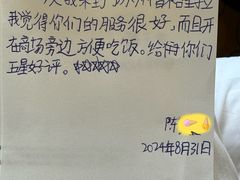 我觉得你们的服务很好,而且开
在商场旁边方便吃饭。给你们
五星好评。
陈
2024年8月31日